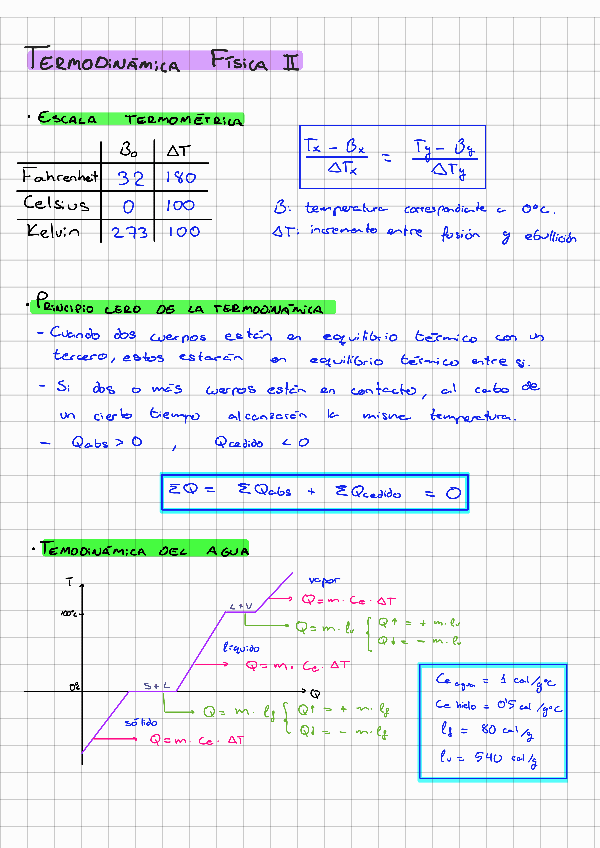 TERMODINÁMICA FÍSICA II
· ESCALA TERMOMÉTRICA
B₀ ΔT
Fahrenheit 32 180
Celsius 0 100
Kelvin 273 100
Tx - Bx / ΔTx = Ty - By / ΔTy
B: temperatura correspondiente a 0ºC.
ΔT: incremento entre fusión y ebullición
· PRINCIPIO CERO DE LA TERMODINÁMICA
- Cuando dos cuerpos están en equilibrio térmico con un
tercero, estos estarán en equilibrio térmico entre si.
- Si dos o más cuerpos están en contacto, al cabo de
un cierto tiempo alcanzarán la misma temperatura.
- Qabs > 0 , Qcedido < 0
ΣQ = ΣQabs + ΣQcedido = 0
· TEMODINÁMICA DEL AGUA
T
vapor
Q = m · Ce · ΔT
100ºC
L + V
Q = m · lv { Q↑ = + m · lv
Q↓ = - m · lv
líquido
Q = m · Ce · ΔT
0ºC
S + L
Q
Q = m · lf { Q↑ = + m · lf
Q↓ = - m · lf
sólido
Q = m · Ce · ΔT
Ce agua = 1 cal/gºC
Ce hielo = 0'5 cal/gºC
lf = 80 cal/g
lv = 540 cal/g